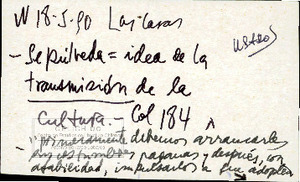 N 18-5-90 Las Casas
- Sepúlveda = idea de la
transmisión de la
Cultura.- Col 184
- "primeramente debemos arrancarles
paganas y después, con
afabilidad, impulsarlos a que adopten